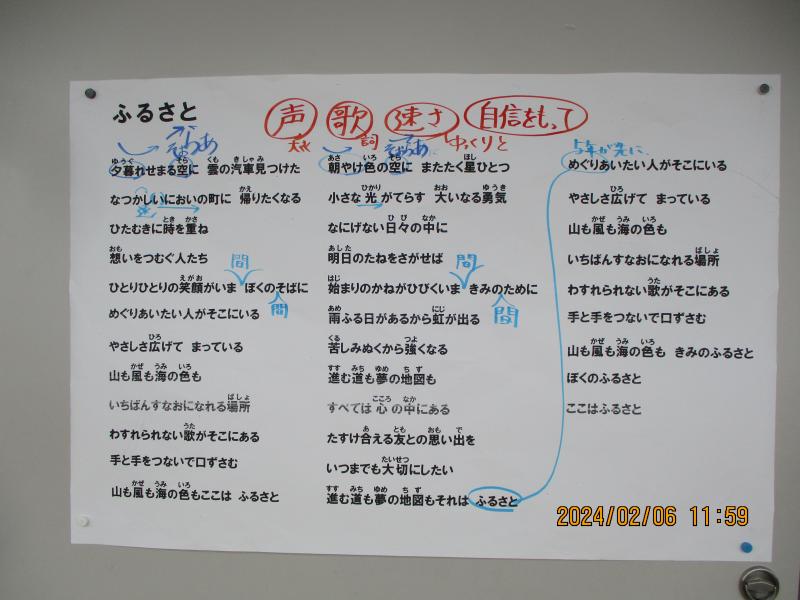 ふるさと
声 歌 速さ 自信をもって
大 詞 ゆっくりと
夕暮れせまる空に 雲の汽車見つけた
なつかしいにおいの町に 帰りたくなる
ひたむきに時を重ね
想いをつむぐ人たち
間
ひとりひとりの笑顔がいま ぼくのそばに
間
めぐりあいたい人がそこにいる
やさしさ広げて まっている
山も風も海の色も
いちばんすなおになれる場所
わすれられない歌がそこにある
手と手をつないで口ずさむ
山も風も海の色もここは ふるさと
朝やけ色の空に またたく星ひとつ
小さな光がてらす 大いなる勇気
なにげない日々の中に
明日のたねをさがせば
間
始まりのかねがひびくいま きみのために
間
雨ふる日があるから虹が出る
苦しみぬくから強くなる
進む道も夢の地図も
すべては心の中にある
たすけ合える友との思い出を
いつまでも大切にしたい
進む道も夢の地図もそれは ふるさと
5年が先に
めぐりあいたい人がそこにいる
やさしさ広げて まっている
山も風も海の色も
いちばんすなおになれる場所
わすれられない歌がそこにある
手と手をつないで口ずさむ
山も風も海の色も きみのふるさと
ぼくのふるさと
ここはふるさと
2024/02/06 11:59